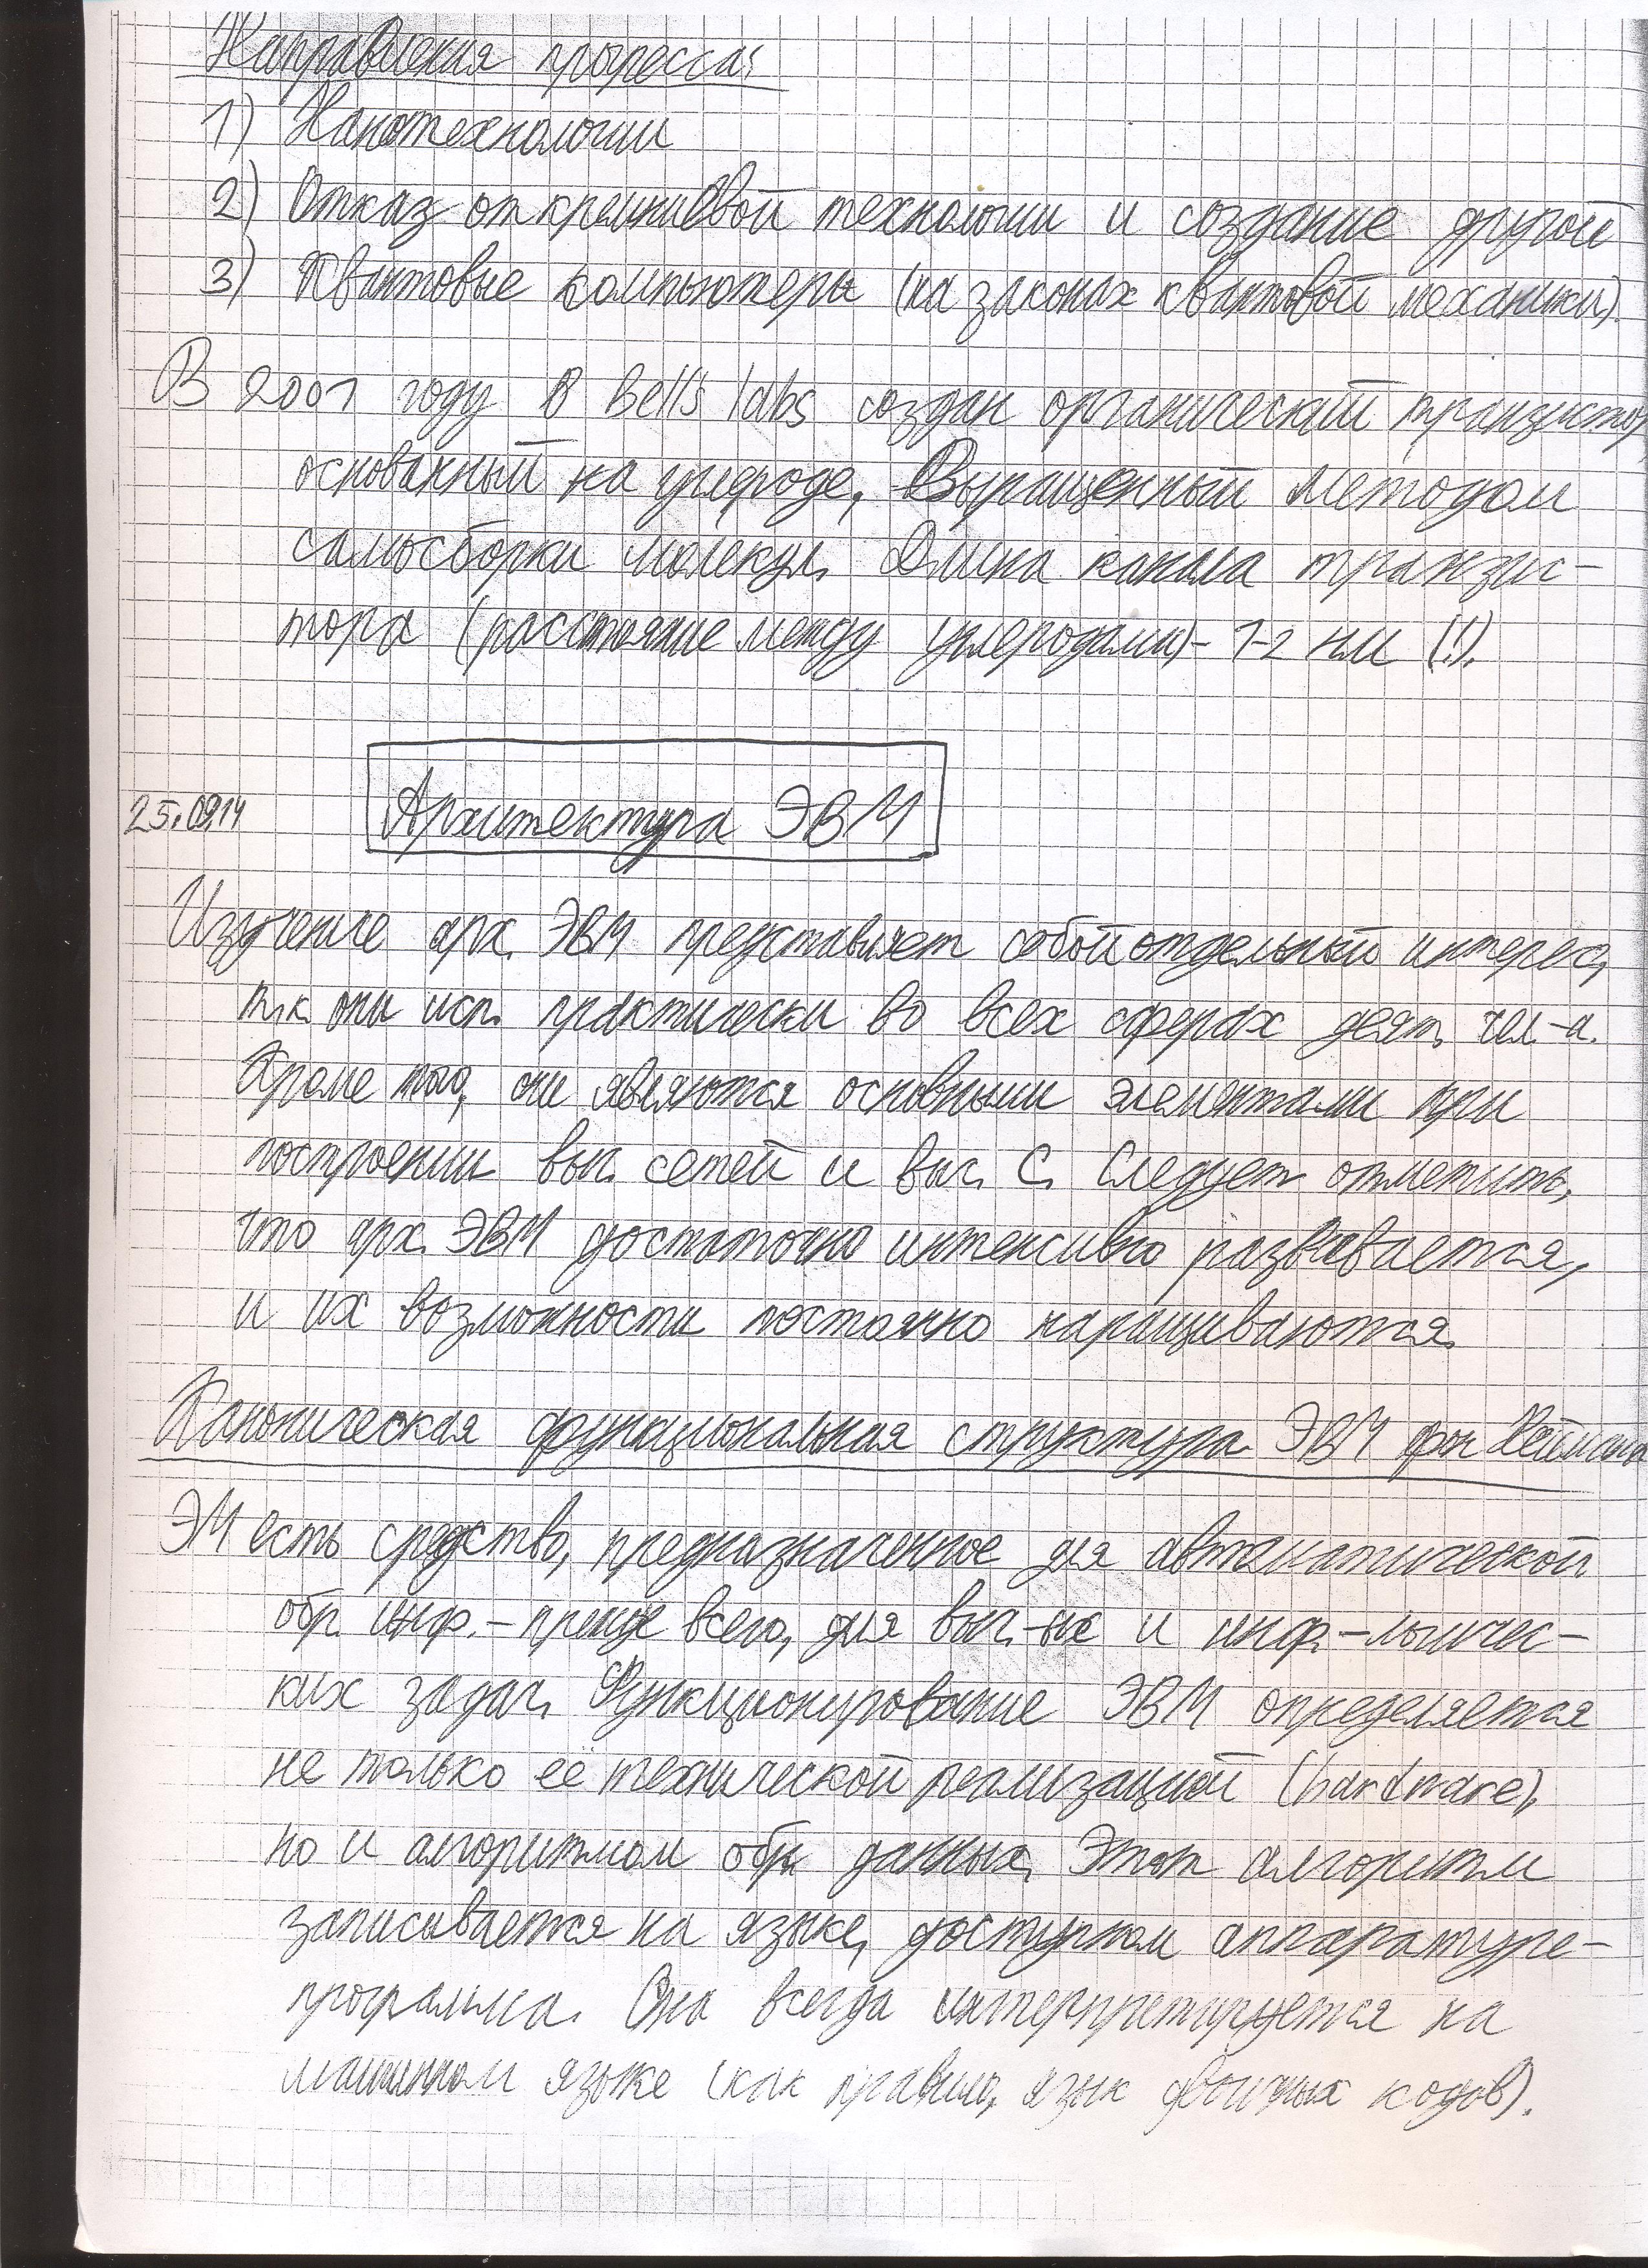 Направления прогресса:
1) Нанотехнологии
2) Отказ от кремниевой технологии и создание другой
3) Квантовые компьютеры (на законах квантовой механики).
В 2001 году в Bell's labs создан органический транзистор,
основанный на углероде, выращенный методом
самосборки молекул. Длина канала транзис-
тора (расстояние между углеродами) - 1-2 нм (!).
Архитектура ЭВМ
25.09.14
Изучение арх. ЭВМ представляет собой отдельный интерес,
т.к. они исп. практически во всех сферах деят. чел-а.
Кроме того, они являются основными элементами при
построении выч. сетей и выч. С. Следует отметить,
что арх. ЭВМ достаточно интенсивно развивается,
и их возможности постоянно наращиваются.
Каноническая функциональная структура ЭВМ фон Неймана
ЭМ есть средство, предназначенное для автоматической
обр. инф. - прежде всего, для выч.-ых и инф.-логичес-
ких задач. Функционирование ЭВМ определяется
не только её технической реализацией (hardware),
но и алгоритмом обр. данных. Этот алгоритм
записывается на языке, доступном аппаратуре -
программа. Она всегда интерпретируется на
машинном языке (как правило, язык двоичных кодов).